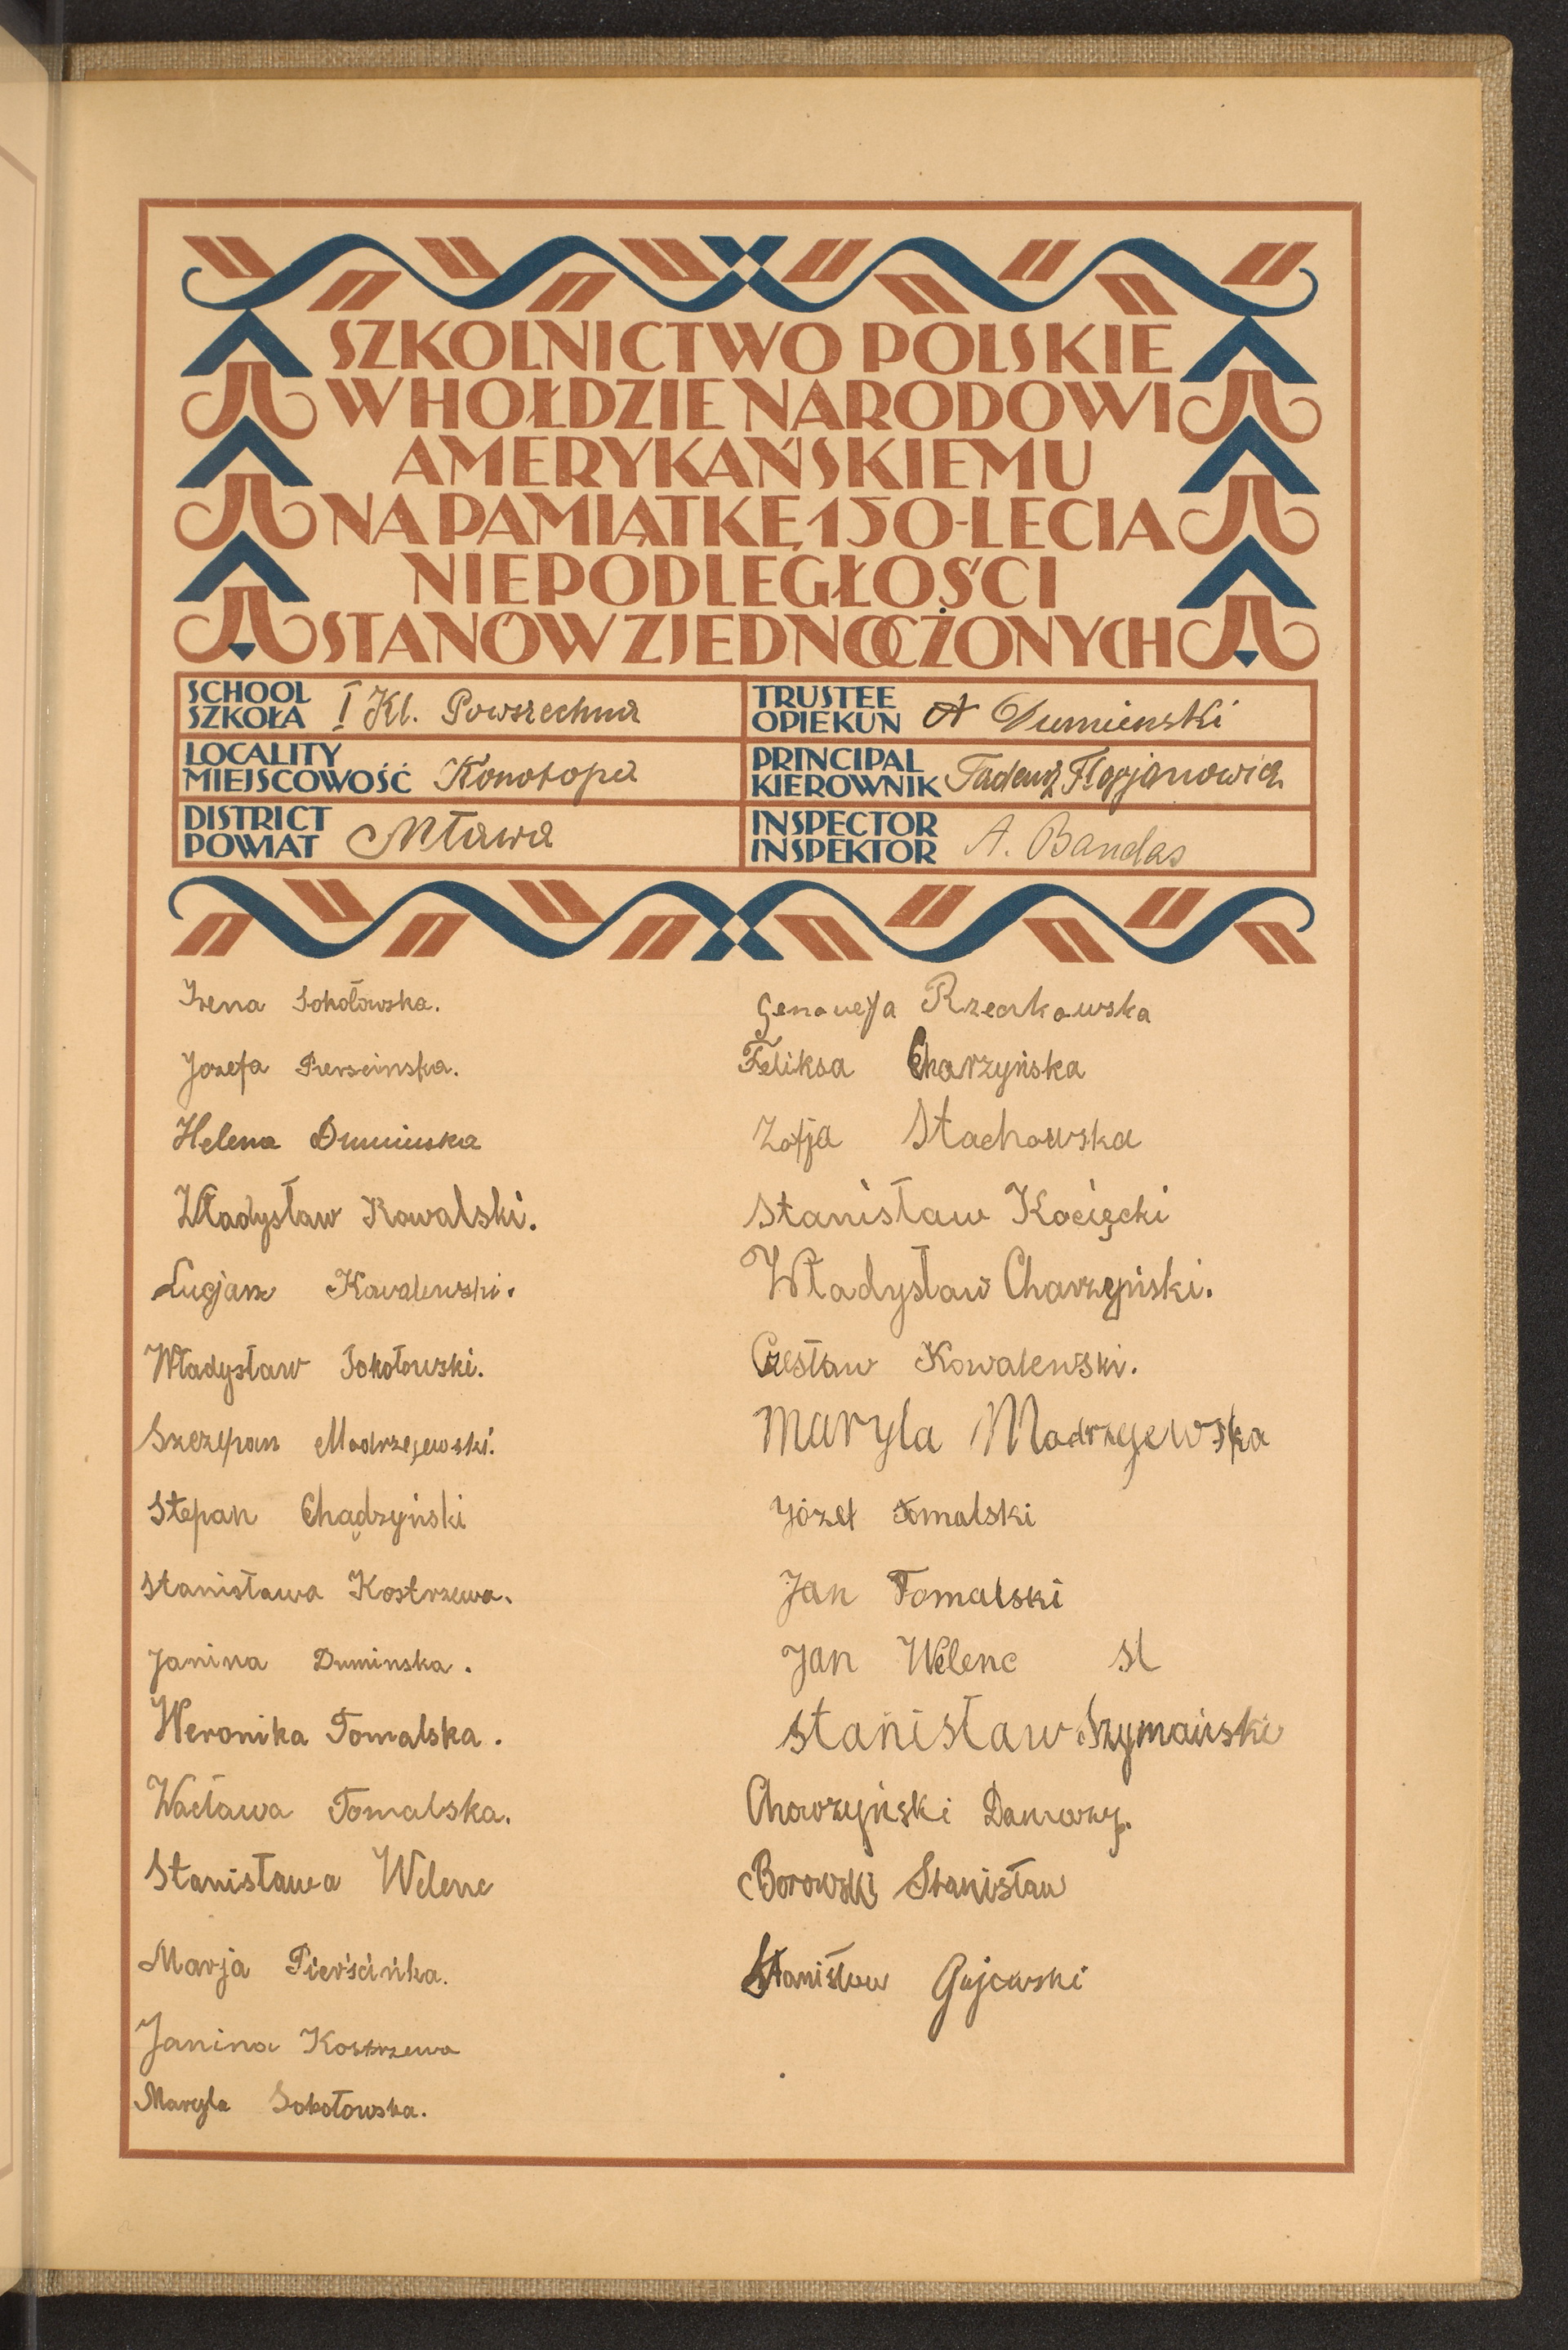 SZKOLNICTWO POLSKIE
W HOŁDZIE NARODOWI
AMERYKAŃSKIEMU
NA PAMIĄTKĘ 150-LECIA
NIEPODLEGŁOŚCI
STANÓW ZJEDNOCZONYCH
SCHOOL
SZKOŁA I Kl. Powszechna
LOCALITY
MIEJSCOWOŚĆ Konotopa
DISTRICT
POWIAT Mława
TRUSTEE
OPIEKUN A Dumienski
PRINCIPAL
KIEROWNIK Tadeusz Florjanowicz
INSPECTOR
INSPEKTOR A. Bandas
Irena Sokołowska.
Jozefa Pierscinska.
Helena Duminska
Władysław Kowalski.
Lucjan Kowalewski.
Władysław Sokołowski.
Szczepan Modrzejewski.
Stepan Chądzyński
Stanisława Kostrzewa.
Janina Duminska.
Weronika Tomalska.
Wacława Tomalska.
Stanisława Welenc
Marja Pierścińka.
Janina Kostrzewa
Maryla Sokołowska.
Genowefa Rzeczkowska
Feliksa Charzyńska
Zofja Stachowska
Stanisław Kocięcki
Władysław Charzyński.
Czesław Kowalewski.
Maryla Modrzejewska
Józef Tomalski
Jan Tomalski
Jan Welenc st
Stanisław Szymański
Charzyński Damazy.
Borowski Stanisław
Stanisław Gajewski